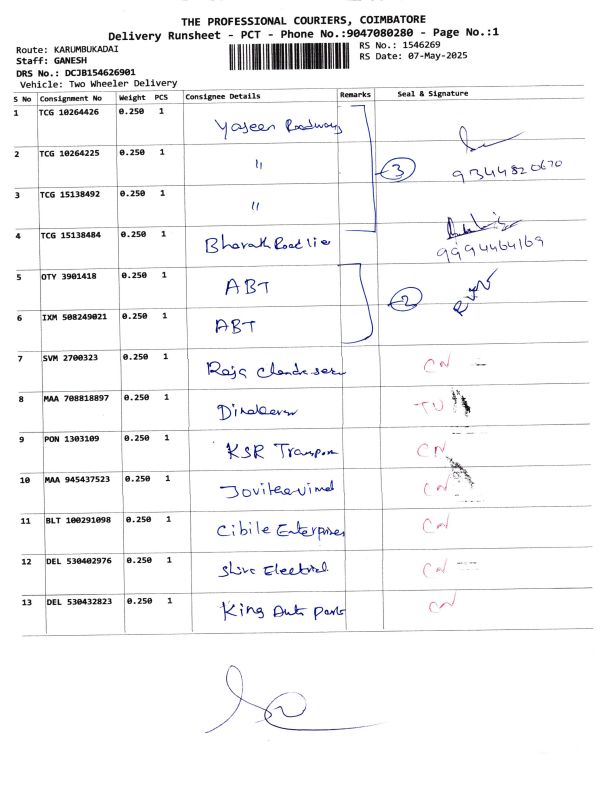 THE PROFESSIONAL COURIERS, COIMBATORE
Delivery Runsheet - PCT - Phone No.:9047080280 - Page No.:1
Route: KARUMBUKADAI
RS No.: 1546269
Staff: GANESH
RS Date: 07-May-2025
DRS No.: DCJB154626901
Vehicle: Two Wheeler Delivery
S No Consignment No Weight PCS Consignee Details Remarks Seal & Signature
1 TCG 10264426 0.250 1 Yaseen Roadways
2 TCG 10264225 0.250 1 " 3 9344820670
3 TCG 15138492 0.250 1 "
4 TCG 15138484 0.250 1 Bharath 9994464169
5 OTY 3901418 0.250 1 ABT 2
6 IXM 508249021 0.250 1 ABT
7 SVM 2700323 0.250 1 Raja CN
8 MAA 708818897 0.250 1
9 PON 1303109 0.250 1 KSR Transport CN
10 MAA 945437523 0.250 1 CN
11 BLT 100291098 0.250 1 Cibile Enterprises CN
12 DEL 530402976 0.250 1 Shiva Electrical CN
13 DEL 530432823 0.250 1 King Auto Parts CN